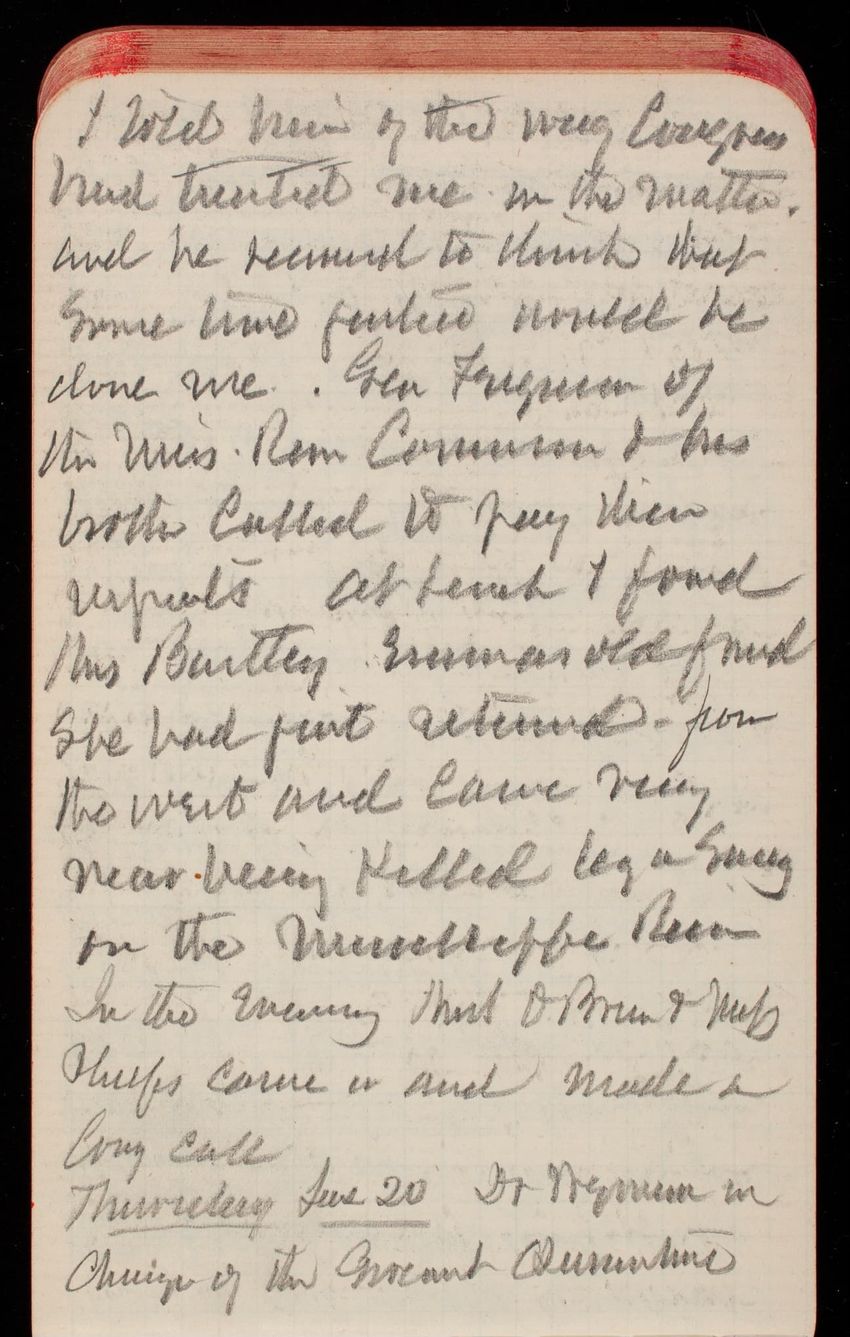 I told him of the way Congress
had treated me in the matter.
and he seemed to think that
Some time justice would be
done me. Gen Ferguson of
the Miss. River Commison & his
brother Called to pay their
respects at lunch I found
Mrs Bartley Emmas old friend
She had just returned - from
the west and came very
near being Killed by a Snag
on the Mississippi River
In the Evening Mrs O Brien & Miss
Phelps came in and made a
long call
Thursday 20 Dr Wyman in
Charge of the Quarantine